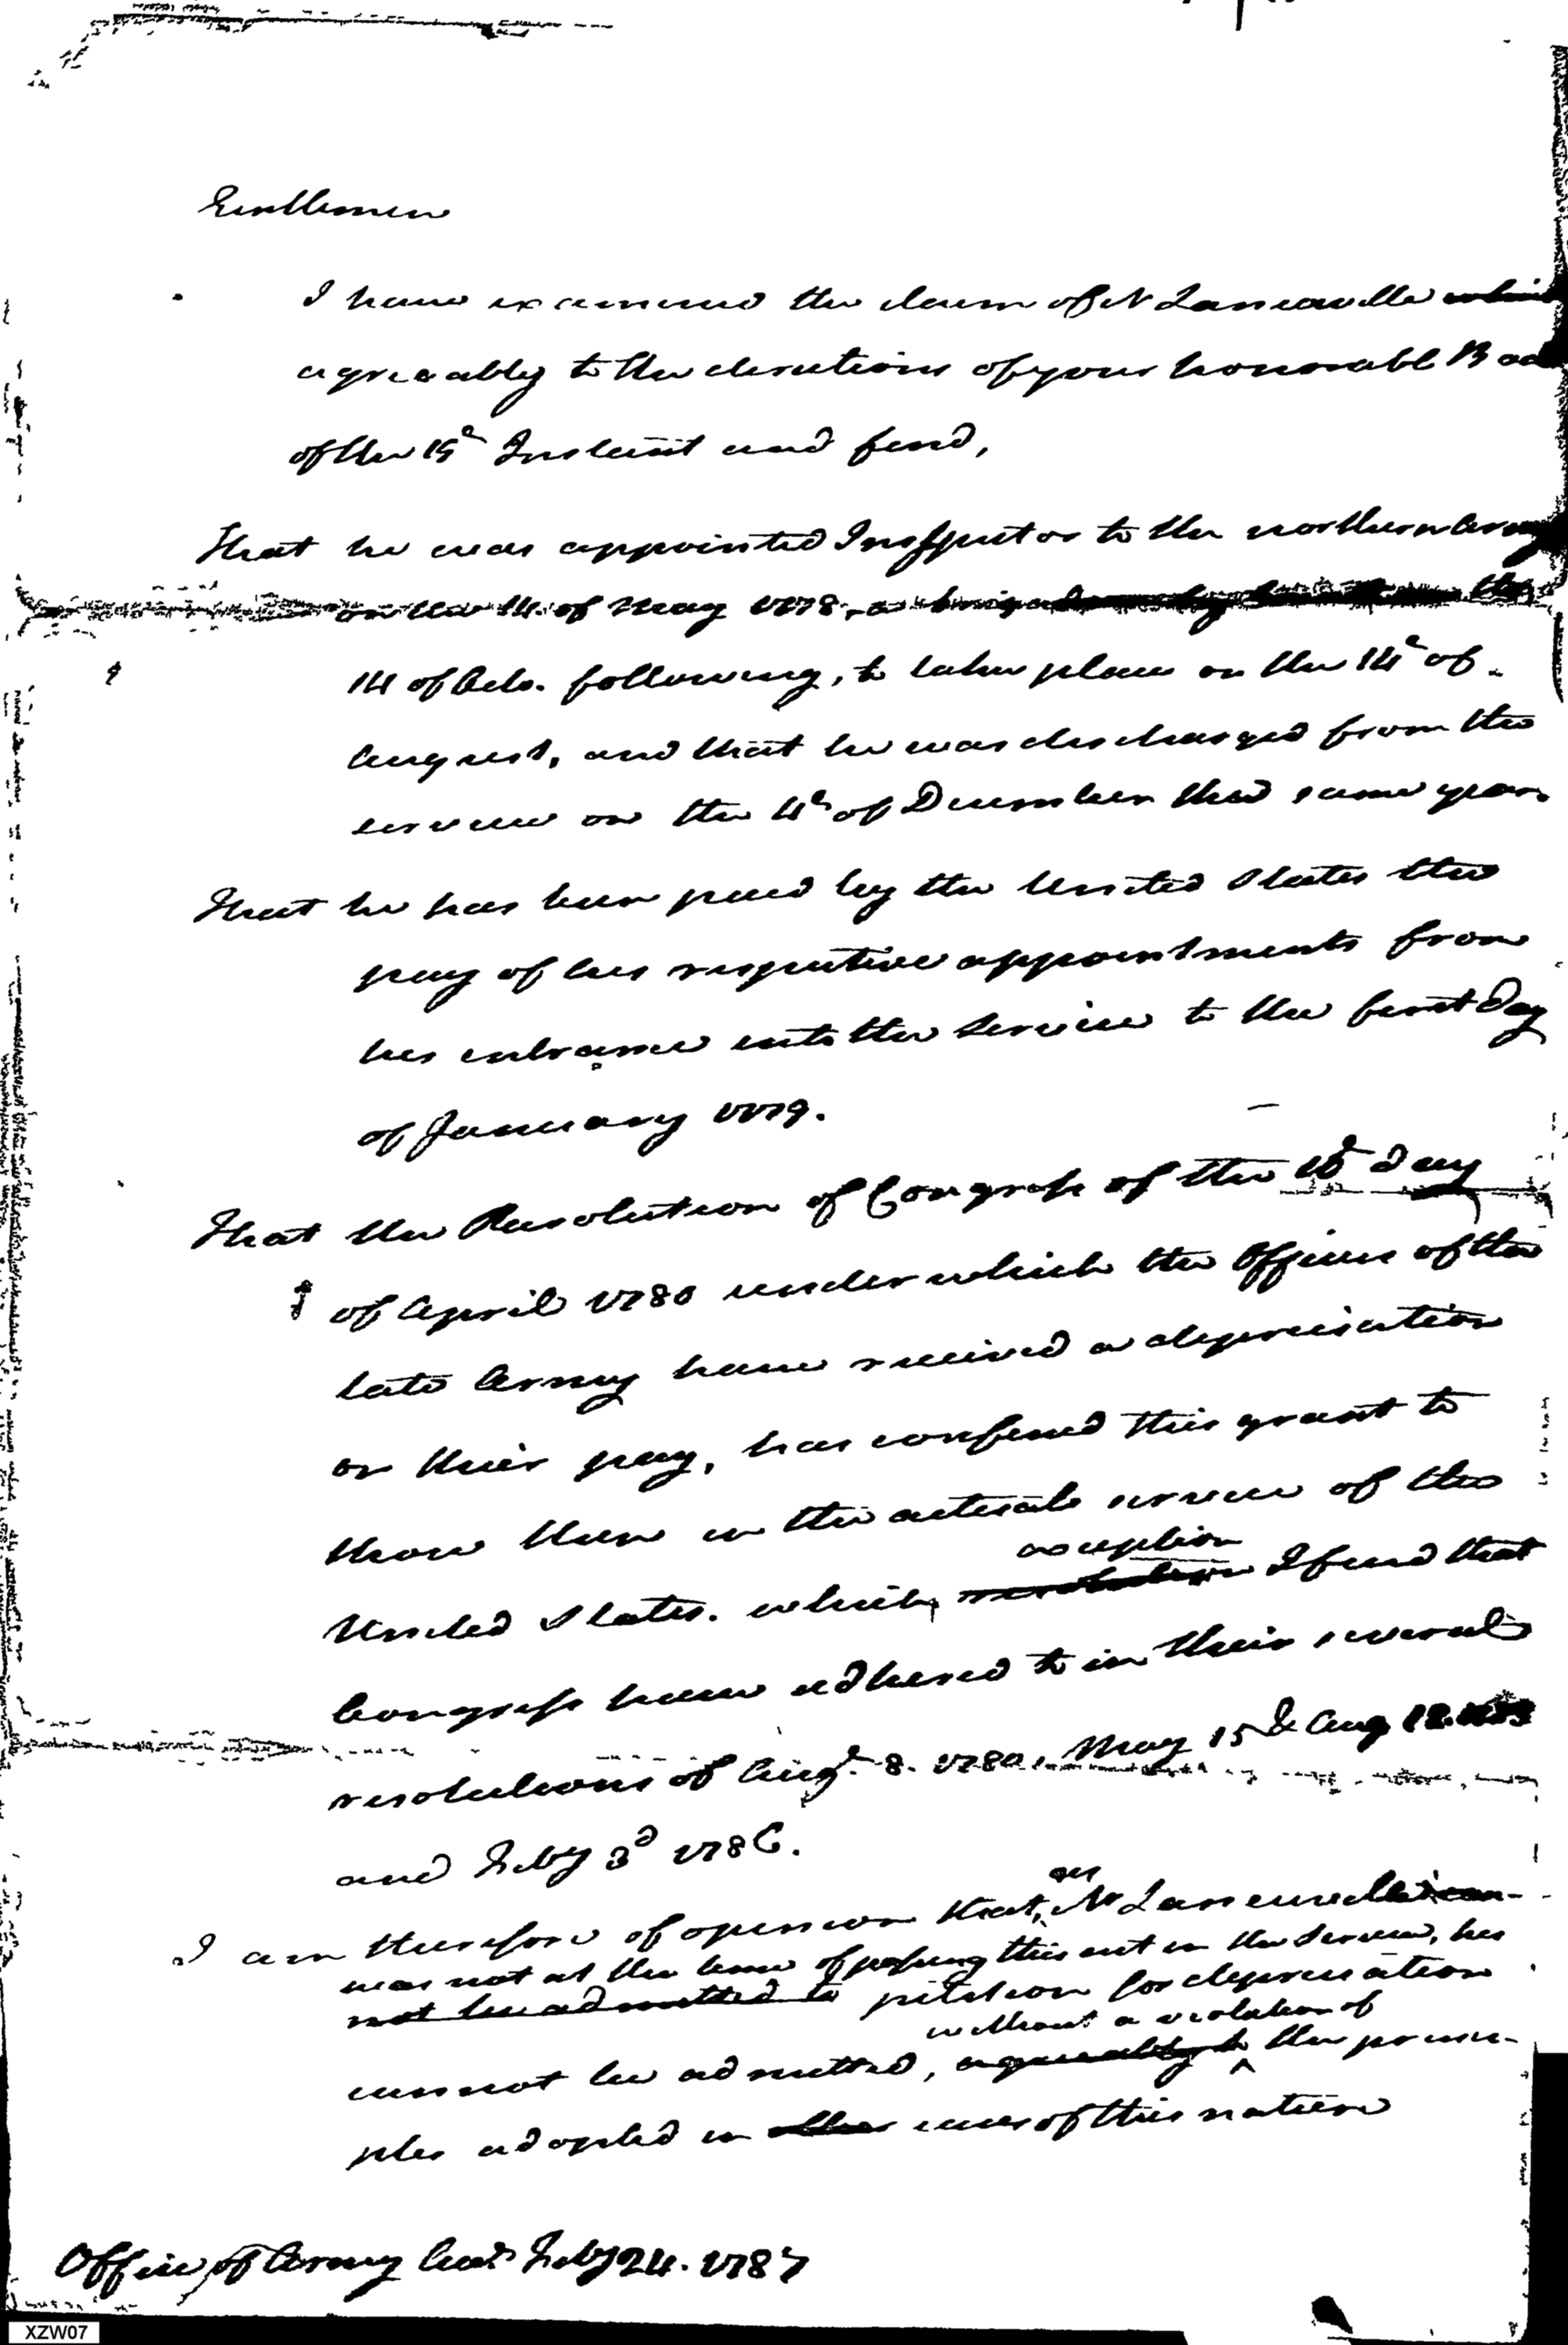 Gentlemen
I have examined the claim of Mr Laneuville which
agreeably to the directions of your honorabl Boa
of the 19th Instant and find,
That he was appointed Inspector to the northern Army
on the 14. of May 1778, a brigadier by the
14 of Octo. following, to take place on the 14th of
August, and that he was discharged from the
service on the 4th of December the same year
That he has been paid by the United States the
pay of his respective appointments from
his entrance into the Service to the first Day
of January 1779.
That the Resolution of Congress of the 10th day
of April 1780 under which the Officers of the
late Army have received a depreciation
on their pay, has confined this grant to
those then in the actual service of the
exception
United States. which, resolution I find that
Congress have adhered to in their several
resolutions of Augt. 8. 1780, May 15 & Aug 12.
and Feby 3d 1786.
as
I am therefore of opinion that, Mr Laneuville can-
was not at the time of passing this act in the Service, his
not be admitted to petition for depreciation
without a violation of
cannot be admitted, agreeably to the princi-
ples adopted in other cases of this nature
Office of Army Accts Feby 24. 1787
XZW07